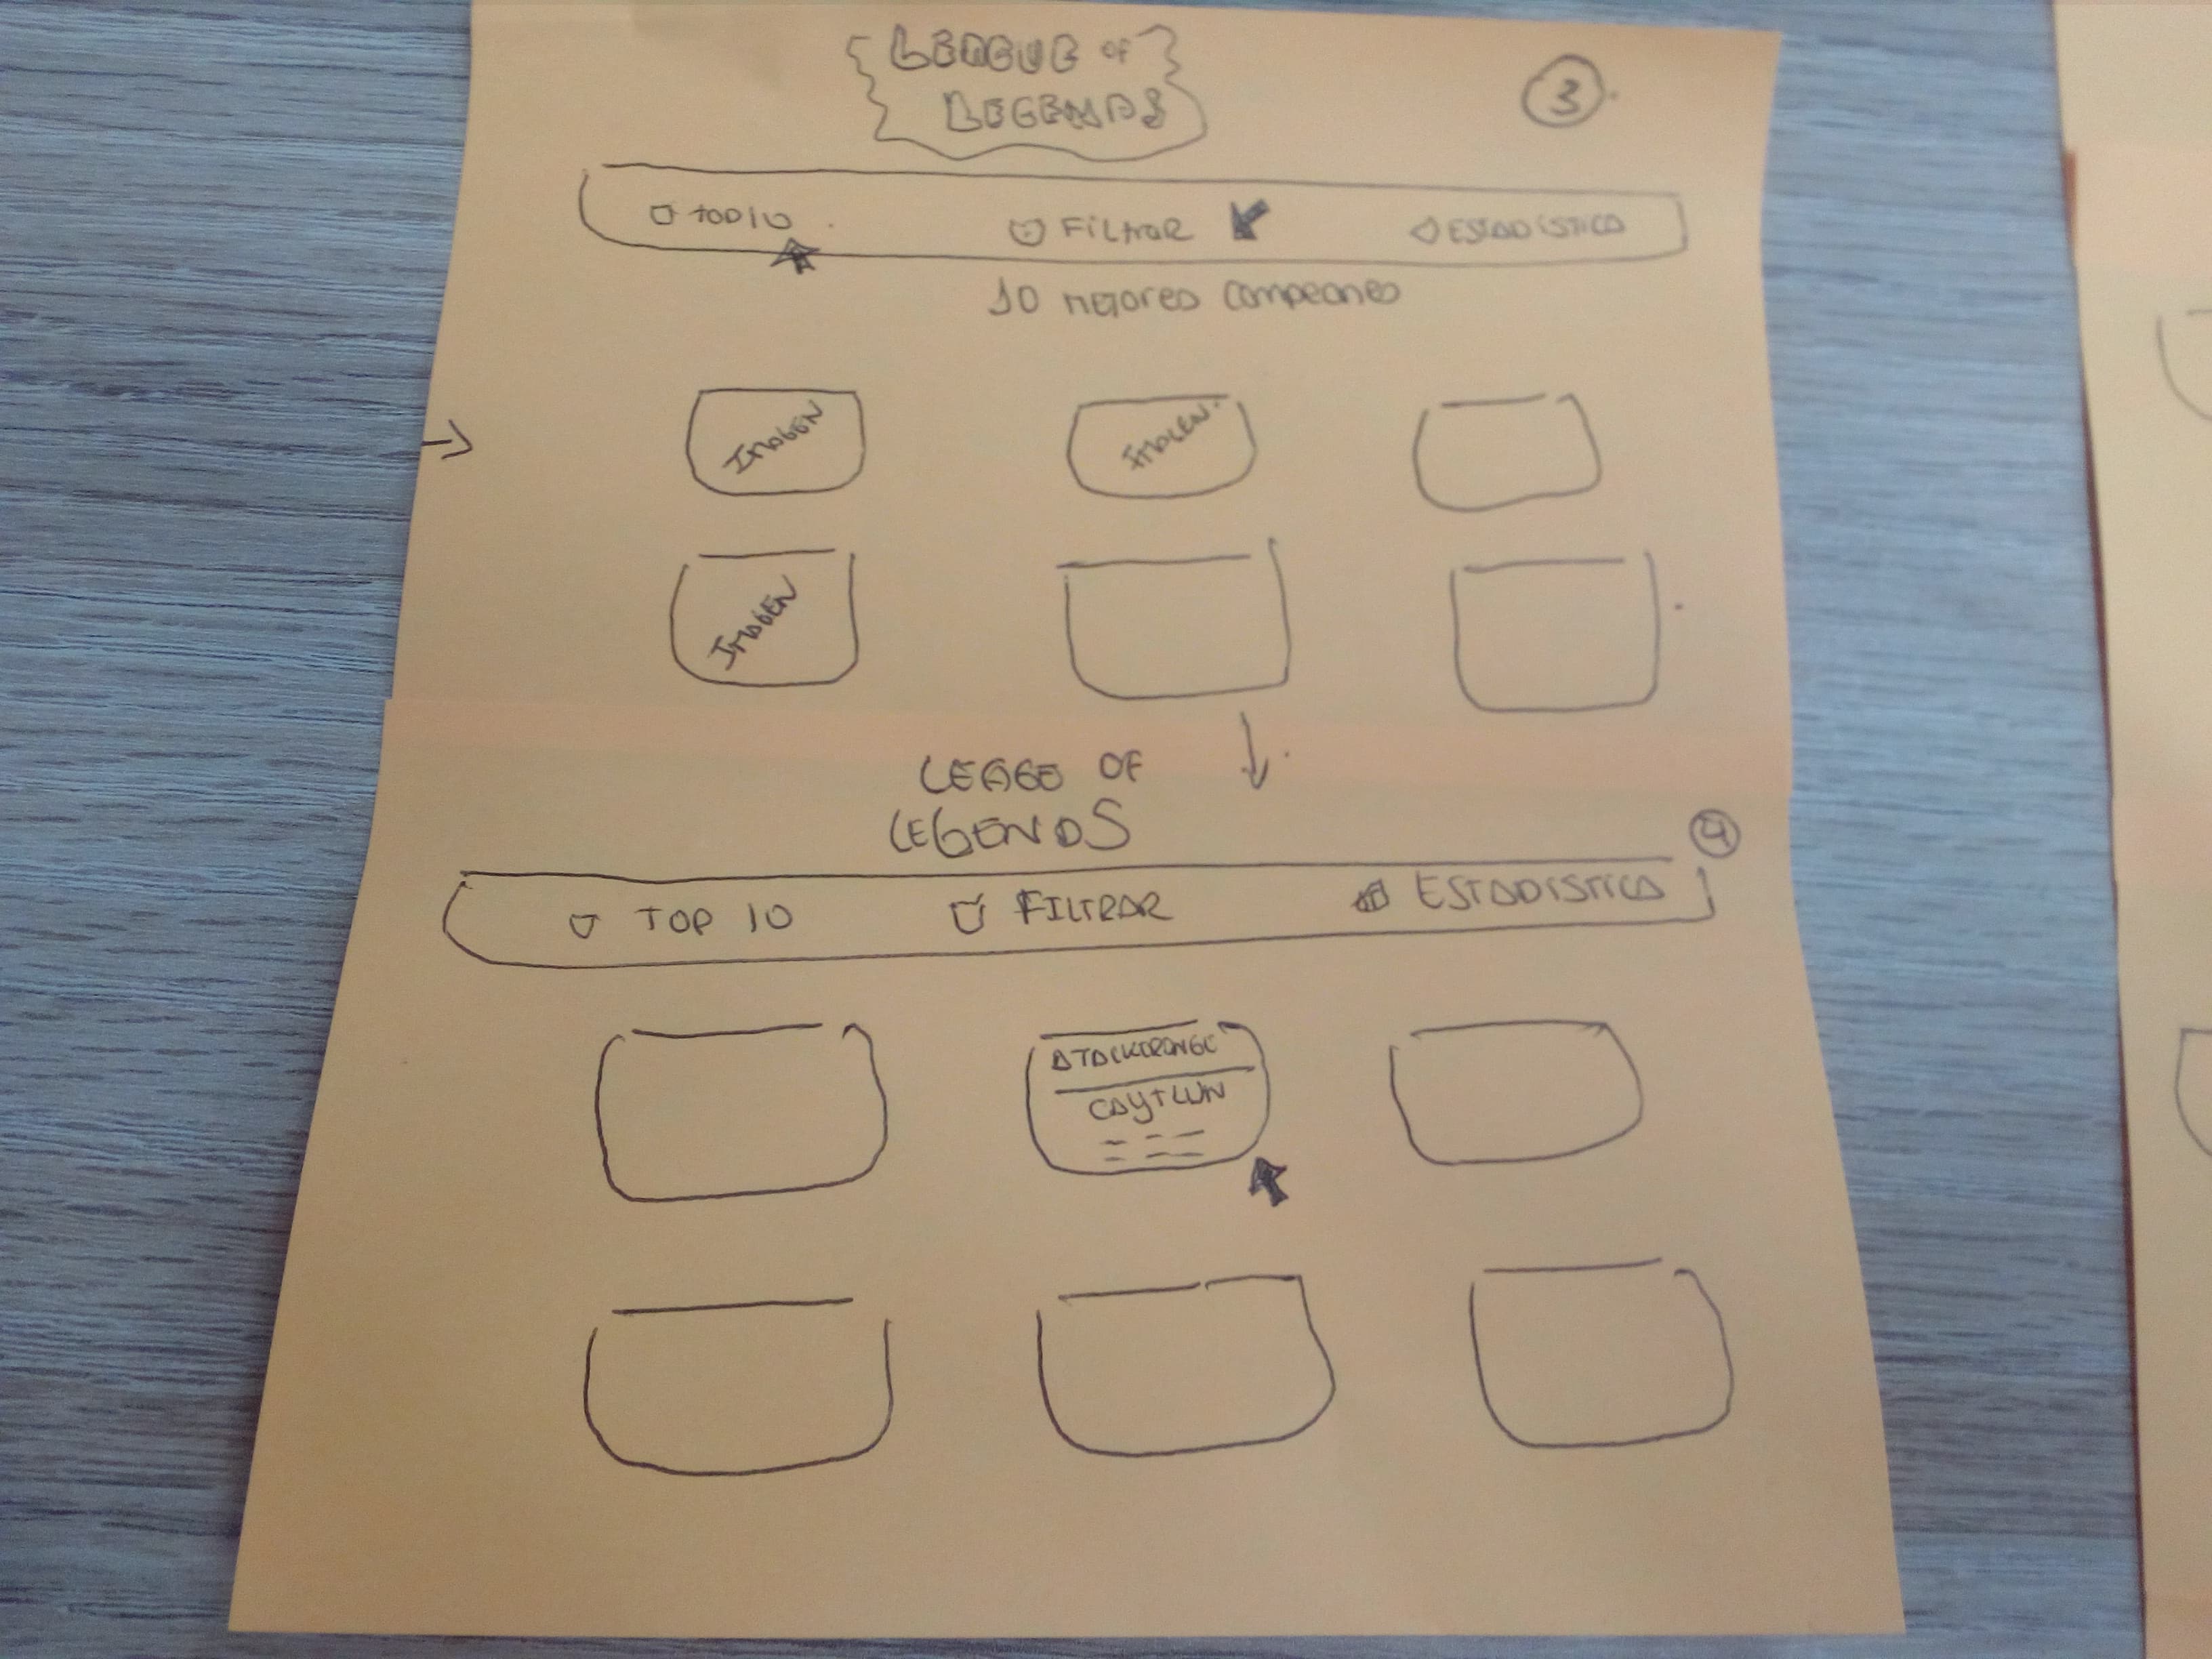 LEAGUE OF
LEGENDS
3
TOP 10 FiLtrar ESTADISTICA
10 mejores campeones
IMAGEN IMAGEN
IMAGEN
LEAGE OF
LEGENDS
4
TOP 10 FILTRAR ESTADISTICA
ATACKRANGE
CAYTLWN